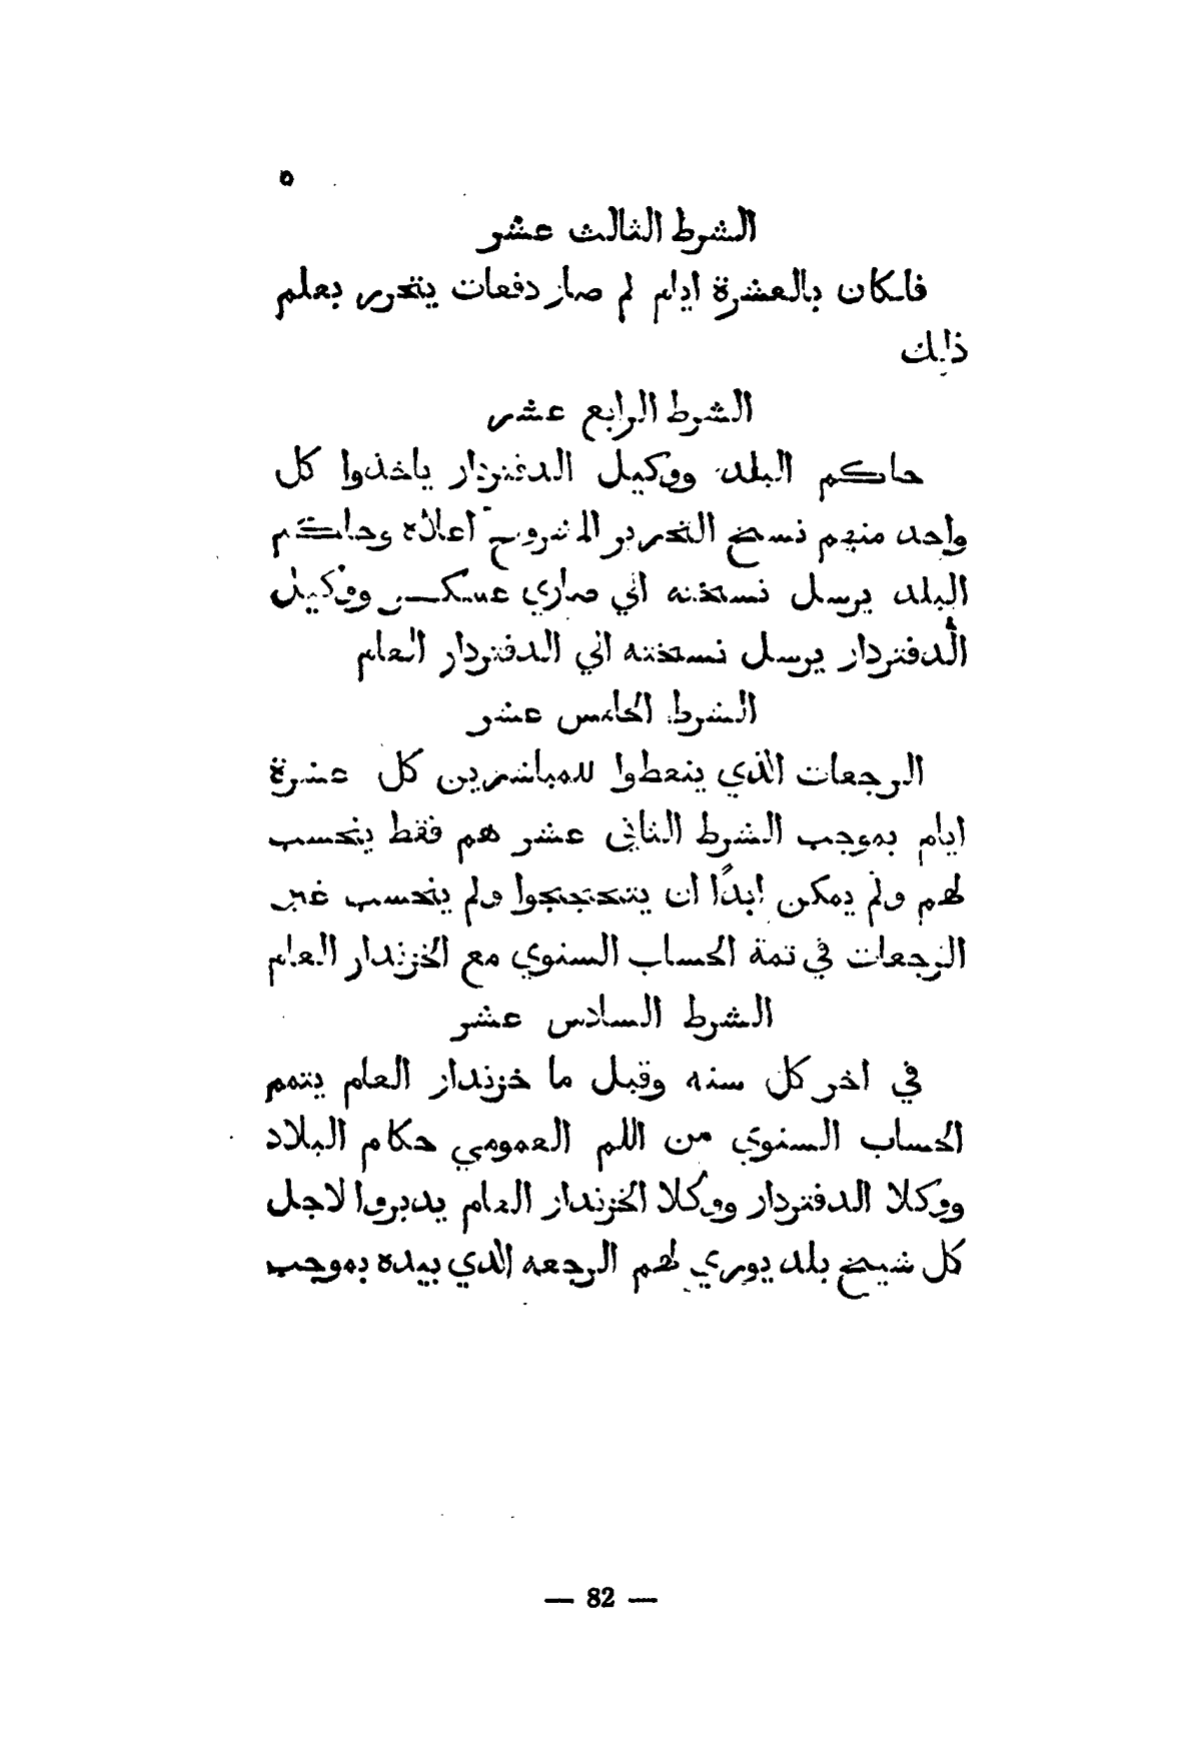 ٥
الشرط الثالث عشر
فانكان بالعشرة ايام لم صار دفعات يتحرر بعلم
ذلك
الشرط الرابع عشر
حاكم البلد ووكيل الدفتردار ياخذوا كل
واحد منهم نسخ التحرير المشروح اعلاه وحاكم
البلد يرسل نسخته الي صاري عسكر ووكيل
الدفتردار يرسل نسخته الي الدفتردار العام
الشرط الخامس عشر
الرجعات الذي ينعطوا للمباشرين كل عشرة
ايام بموجب الشرط الثاني عشر هم فقط ينحسب
لهم ولم يمكن ابدًا ان يتحتجوا ولم ينحسب غير
الرجعات في تمة الحساب السنوي مع الخزندار العام
الشرط السادس عشر
في اخر كل سنه وقبل ما خزندار العام يتمم
الحساب السنوي من اللم العمومي حكام البلاد
ووكلا الدفتردار ووكلا الخزندار العام يدبروا لاجل
كل شيخ بلد يوري لهم الرجعه الذي بيده بموجب
— 82 —